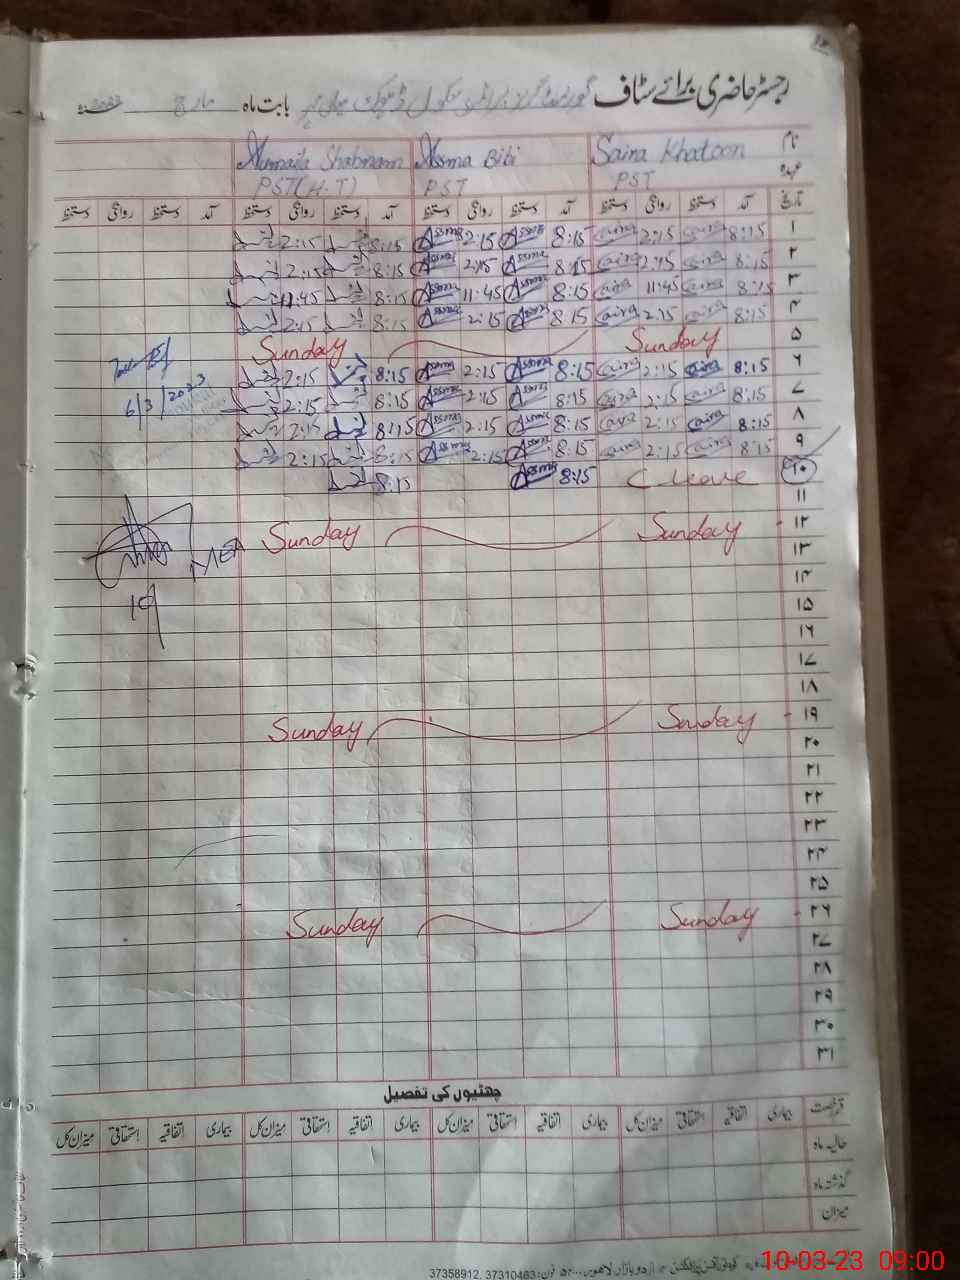 رجسٹر حاضری برائے سٹاف گورنمنٹ گرلز پرائمری سکول ڈھوک میاں بابت ماہ مارچ 2023ء
نام Saira Khatoon Assma Bibi Humaila Shabnam
عہدہ PST PST PST (H.T)
تاریخ آمد دستخط روانگی دستخط آمد دستخط روانگی دستخط آمد دستخط روانگی دستخط آمد دستخط روانگی دستخط
۱ 8:15 Saira 2:15 Saira 8:15 Assma 2:15 Assma 8:15 2:15
۲ 8:15 Saira 2:15 Saira 8:15 Assma 2:15 Assma 8:15 2:15
۳ 8:15 Saira 11:45 Saira 8:15 Assma 11:45 Assma 8:15 11:45
۴ 8:15 Saira 2:15 Saira 8:15 Assma 2:15 Assma 8:15 2:15
۵ Sunday Sunday
۶ 8:15 Saira 2:15 Saira 8:15 Assma 2:15 Assma 8:15 2:15
6/3/2023
۷ 8:15 Saira 2:15 Saira 8:15 Assma 2:15 Assma 8:15 2:15
۸ 8:15 Saira 2:15 Saira 8:15 Assma 2:15 Assma 8:15 2:15
۹ 8:15 Saira 2:15 Saira 8:15 Assma 2:15 Assma 8:15 2:15
۱۰ C leave 8:15 Assma 8:15
۱۱
۱۲ Sunday Sunday
MEA
۱۳
۱۴
10
۱۵
۱۶
۱۷
۱۸
۱۹ Sunday Sunday
۲۰
۲۱
۲۲
۲۳
۲۴
۲۵
۲۶ Sunday Sunday
۲۷
۲۸
۲۹
۳۰
۳۱
چھٹیوں کی تفصیل
رخصت بیماری اتفاقیہ استحقاقی میزان کل بیماری اتفاقیہ استحقاقی میزان کل بیماری اتفاقیہ استحقاقی میزان کل بیماری اتفاقیہ استحقاقی میزان کل
حالیہ ماہ
گذشتہ ماہ
میزان
اردو بازار لاہور فون: 37358912, 37310463
10-03-23 09:00